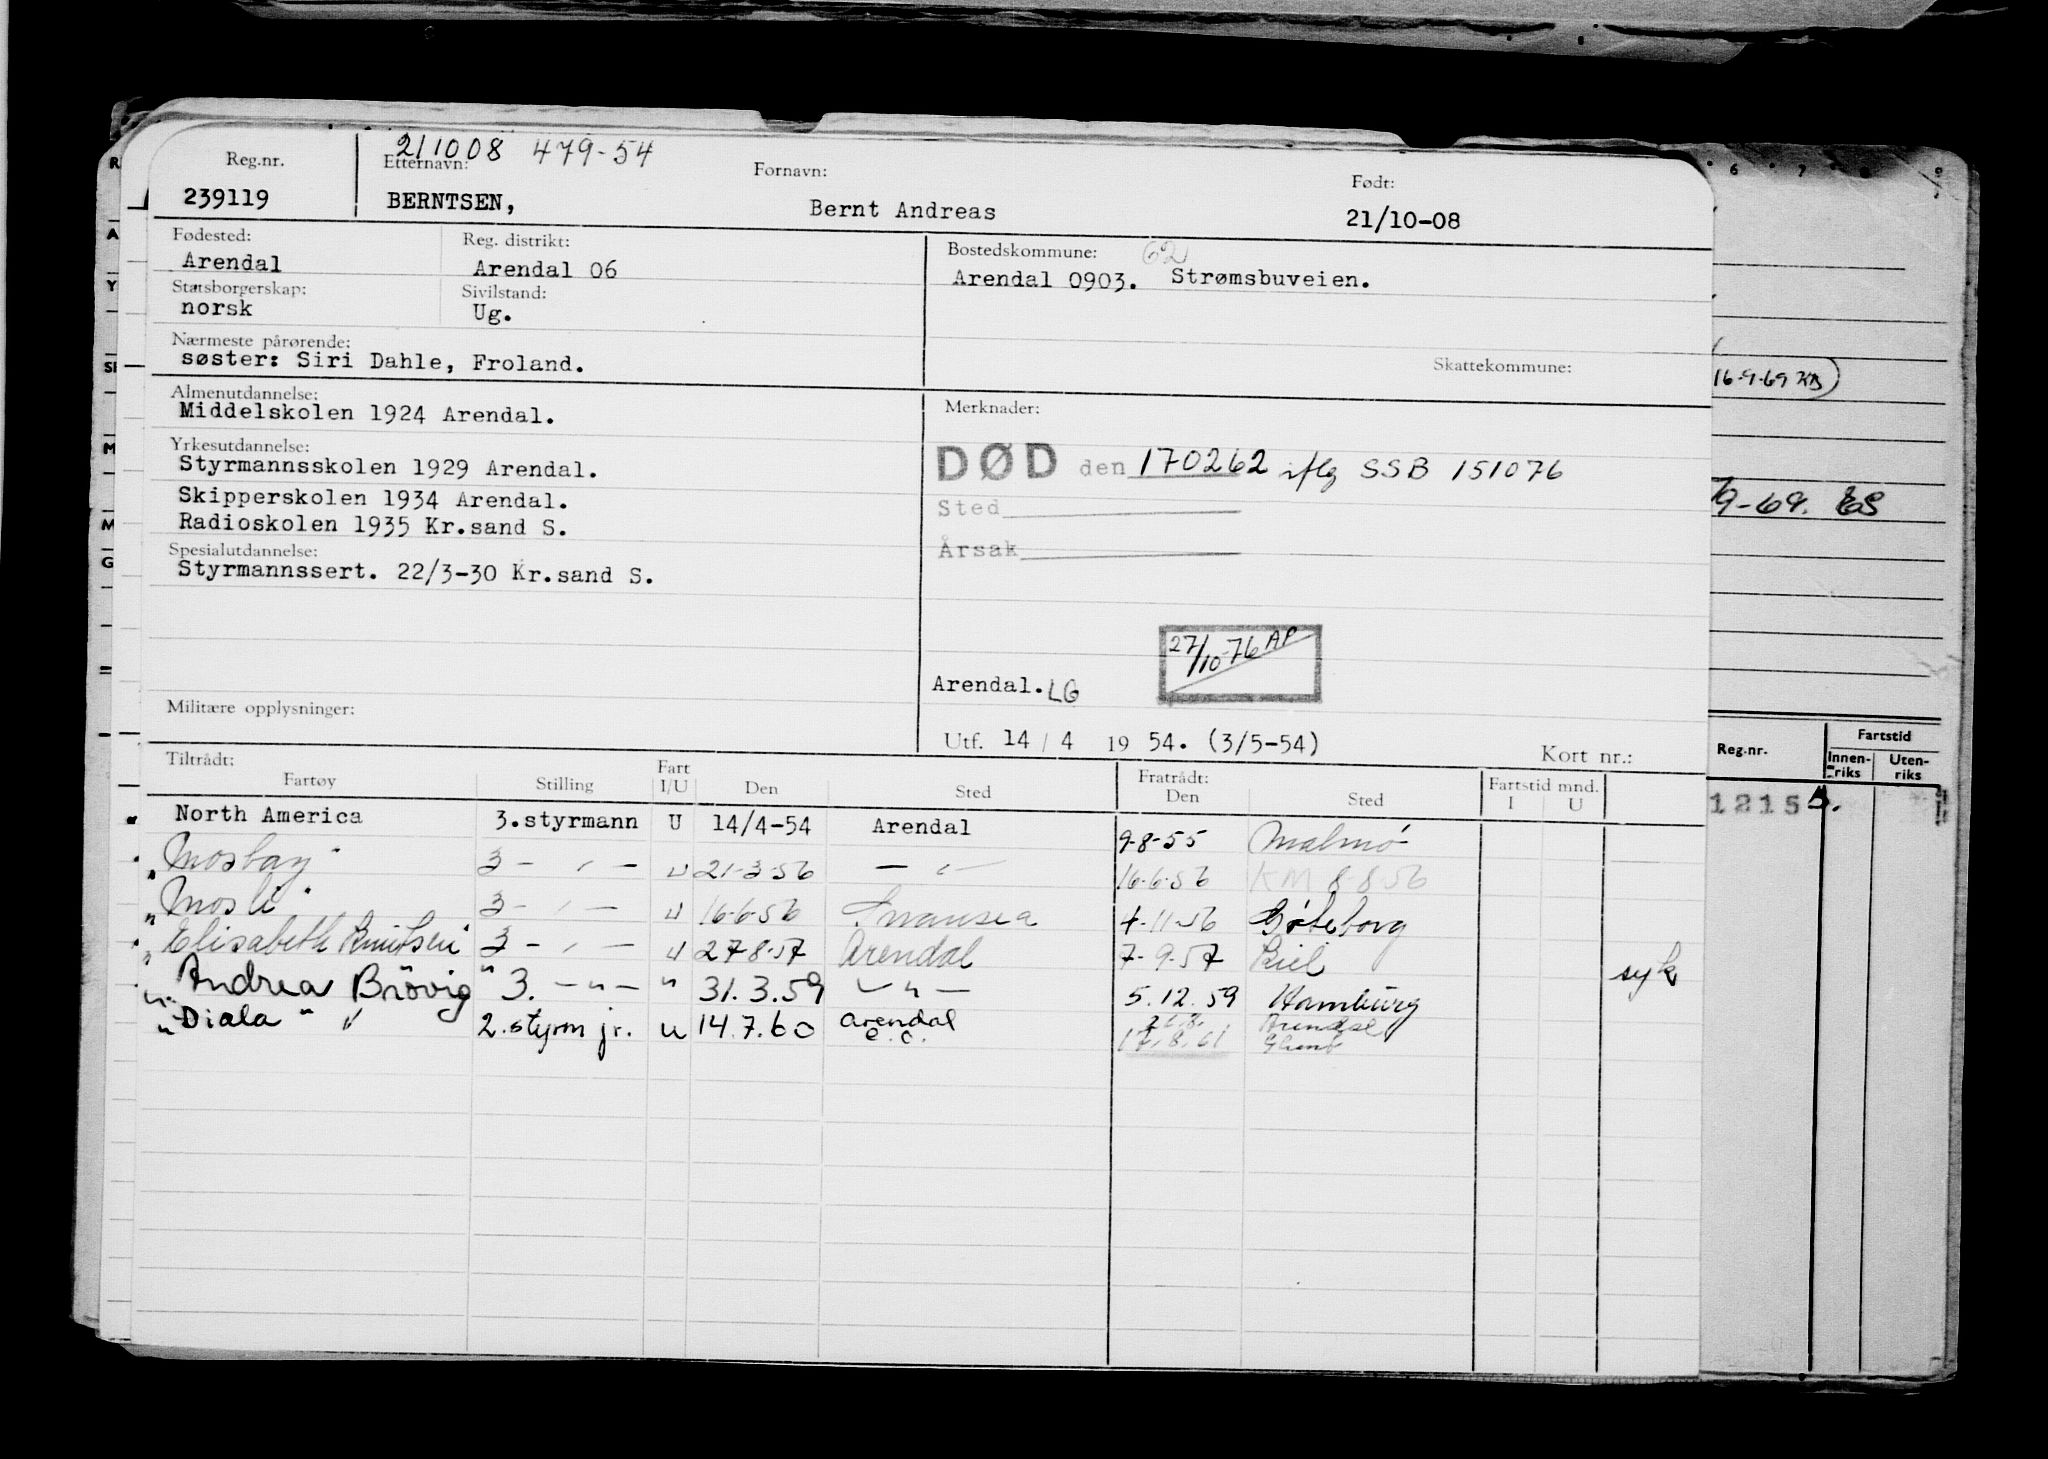 211008 479-54
Reg.nr. Etternavn: Fornavn: Født:
239119 BERNTSEN, Bernt Andreas 21/10-08
Fødested: Reg. distrikt: Bostedskommune: 62
Arendal Arendal 06 Arendal 0903. Strømsbuveien.
Statsborgerskap: Sivilstand:
norsk Ug.
Nærmeste pårørende: Skattekommune:
søster: Siri Dahle, Froland.
Almenutdannelse: Merknader:
Middelskolen 1924 Arendal.
Yrkesutdannelse:
Styrmannsskolen 1929 Arendal. DØD den 170262 iflg SSB 151076
Skipperskolen 1934 Arendal. Sted
Radioskolen 1935 Kr.sand S.
Spesialutdannelse: Årsak
Styrmannssert. 22/3-30 Kr.sand S.
27/10-76 AP
Arendal. LG
Militære opplysninger:
Utf. 14 / 4 19 54. (3/5-54) Kort nr.:
Tiltrådt: Fratrådt:
Fartøy Stilling Fart I/U Den Sted Den Sted Fartstid mnd. I U
North America 3.styrmann U 14/4-54 Arendal 9-8-55 Malmö
" Mosbay " 3 - " - U 21-3-56 - " - 16-6-56 KM 8-8-56
" Mosli " 3 - " - U 16-6-56 Swansea 4-11-56 Göteborg
" Elisabeth Knutsen 3 - " - U 27-8-57 Arendal 7-9-57 Kiel syk
" Andrea Brövig " 3. - " - " 31.3.59 - " - 5.12.59 Hamburg
" Diala " 2.styrm jr. U 14.7.60 Arendal 17.8.61
16-9-69 KB
9-69. ES
Reg.nr. Fartstid
Innen-riks Uten-riks
1215